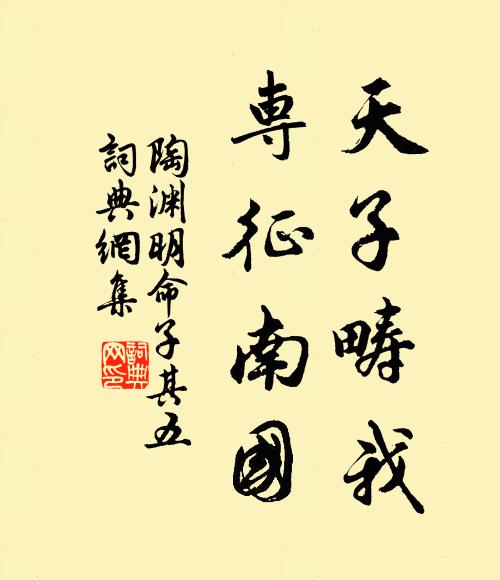 天子疇我
専征南國
陶渊明命子其五
詞典網集
詞典
网印